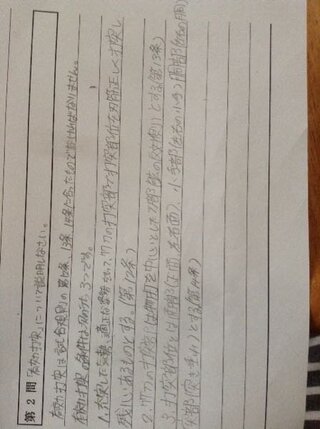 第2問 「有効打突」について説明しなさい。
有効打突は試合規則の第12条、13条、14条に合ったものでなければなりません。
有効打突の条件は次の3つである。
1. 充実した気勢、適正な姿勢をもって、竹刀の打突部で打突部位を刃筋正しく打突し
残心あるものとする。(第12条)
2. 竹刀の打突部は物打を中心とした刃部(弦の反対側)とする(第13条)
3. 打突部位とは面部(正面、左右面)、小手部(左右の小手)胴部(左右の胴)
突部(突き垂れ)とする(第14条)